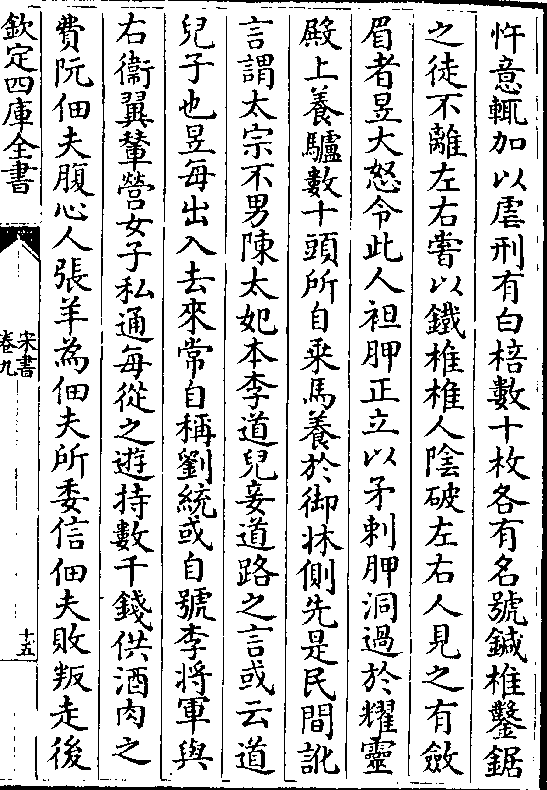 忤意輒加以虐刑有白棓數十枚各有名號鍼椎鑿鋸
之徒不離左右嘗以鐵椎椎人陰破左右人見之有斂
眉者昱大怒令此人袒胛正立以矛刺胛洞過於耀靈
殿上養驢數十頭所自乘馬養於御牀側先是民間訛
言謂太宗不男陳太妃本李道兒妾道路之言或云道
兒子也昱每出入去來常自稱劉統或自號李将軍與
右衞翼輦營女子私通每從之遊持數千錢供酒肉之
費阮佃夫腹心人張羊為佃夫所委信佃夫敗叛走後
欽定四庫全書
宋書
卷九
十五